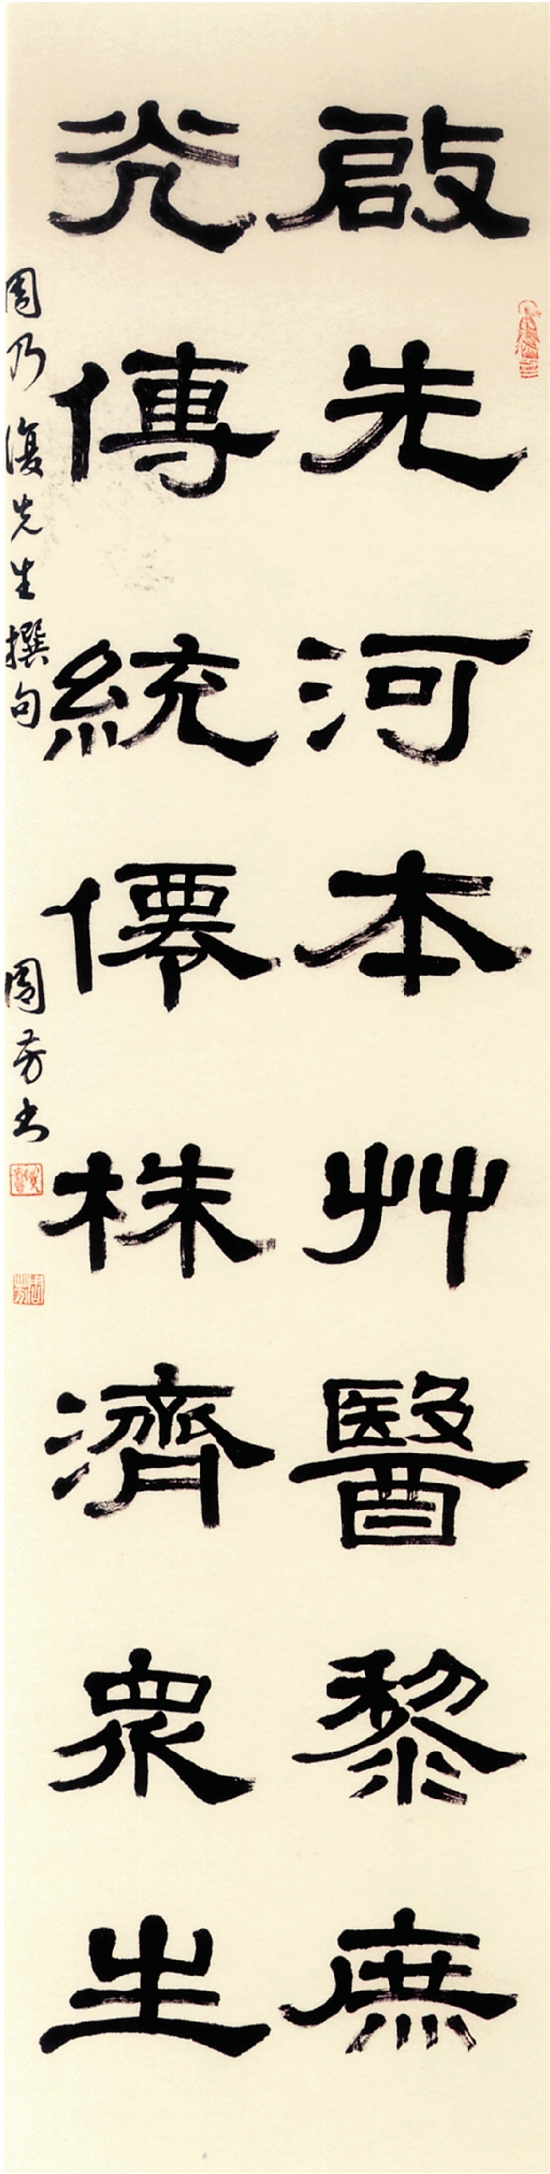 啟先河本艸醫黎庶
光傳統僊株濟衆生
周乃復先生撰句 周芳书